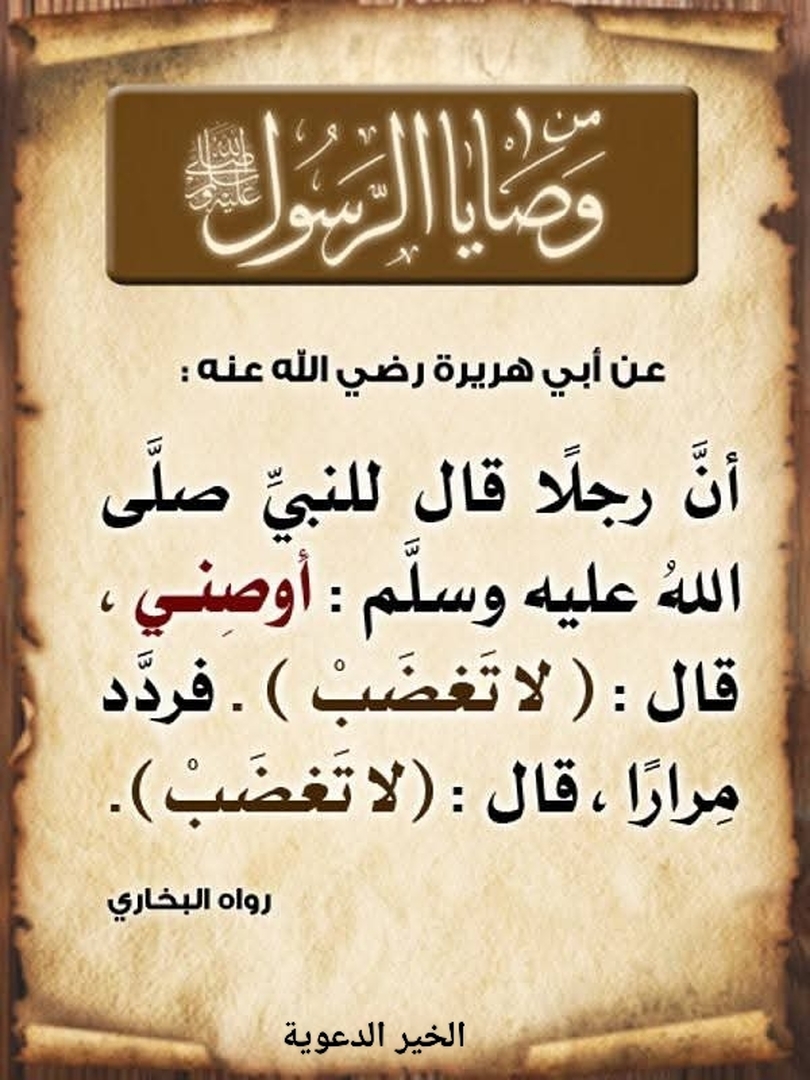 من وصايا الرسول ﷺ
عن أبي هريرة رضي الله عنه :
أنَّ رجلًا قال للنبيِّ صلَّى
اللهُ عليه وسلَّم : أوصِني ،
قال : ( لا تَغضَبْ ) . فردَّد
مِرارًا ، قال : (لا تَغضَبْ).
رواه البخاري
الخير الدعوية